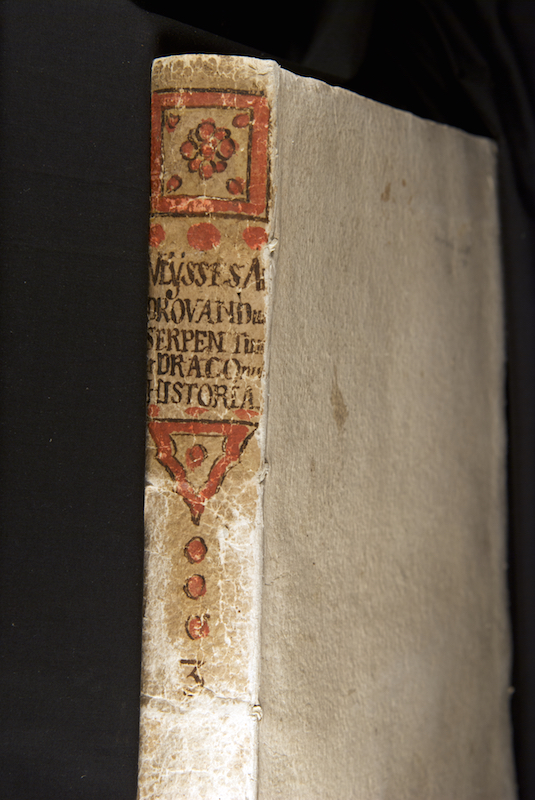 VLYSSES A
DROVANDus
SERPENTium
et DRACOnum
HISTORIA.
3